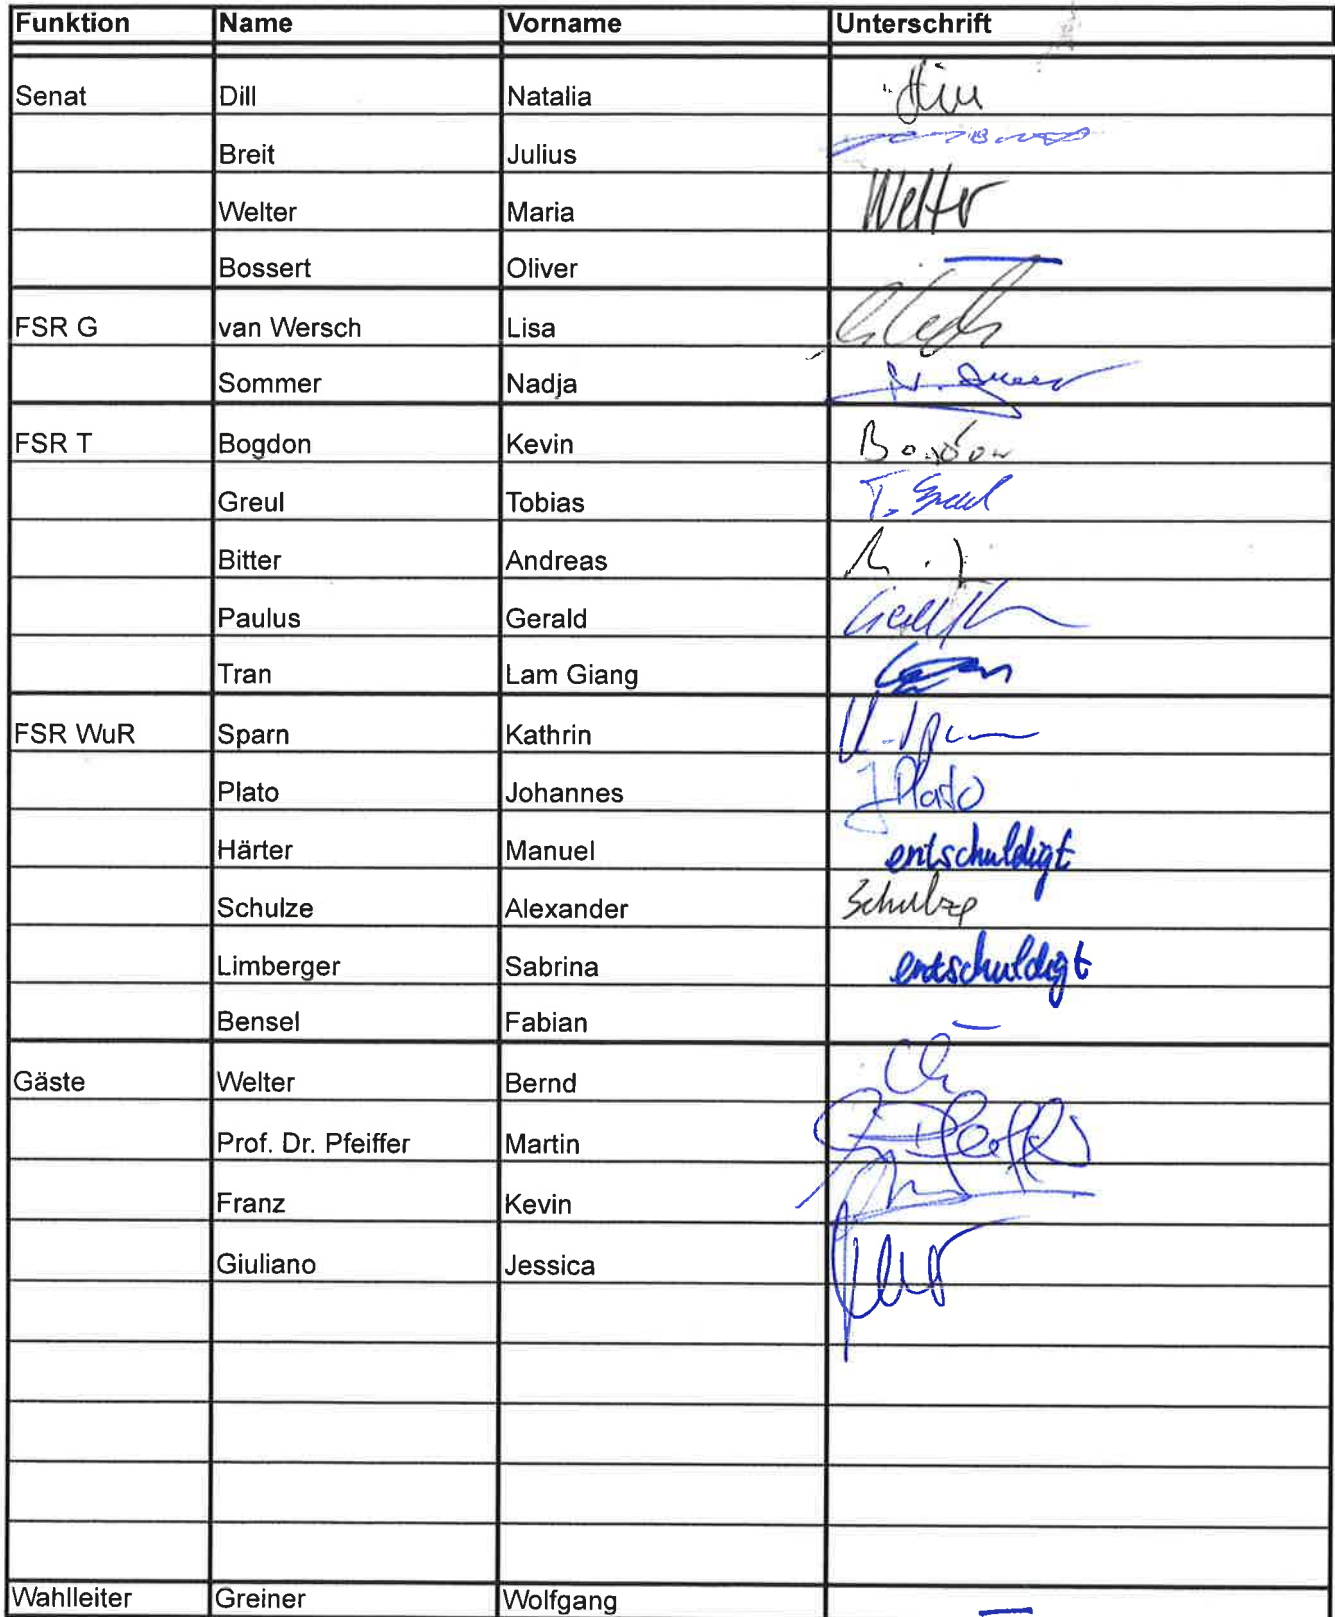 Funktion Name Vorname Unterschrift
Senat Dill Natalia
Breit Julius
Welter Maria Welter
Bossert Oliver —
FSR G van Wersch Lisa
Sommer Nadja
FSR T Bogdon Kevin
Greul Tobias T. Greul
Bitter Andreas
Paulus Gerald
Tran Lam Giang
FSR WuR Sparn Kathrin
Plato Johannes J Plato
Härter Manuel entschuldigt
Schulze Alexander Schulze
Limberger Sabrina entschuldigt
Bensel Fabian —
Gäste Welter Bernd
Prof. Dr. Pfeiffer Martin
Franz Kevin
Giuliano Jessica
Wahlleiter Greiner Wolfgang —